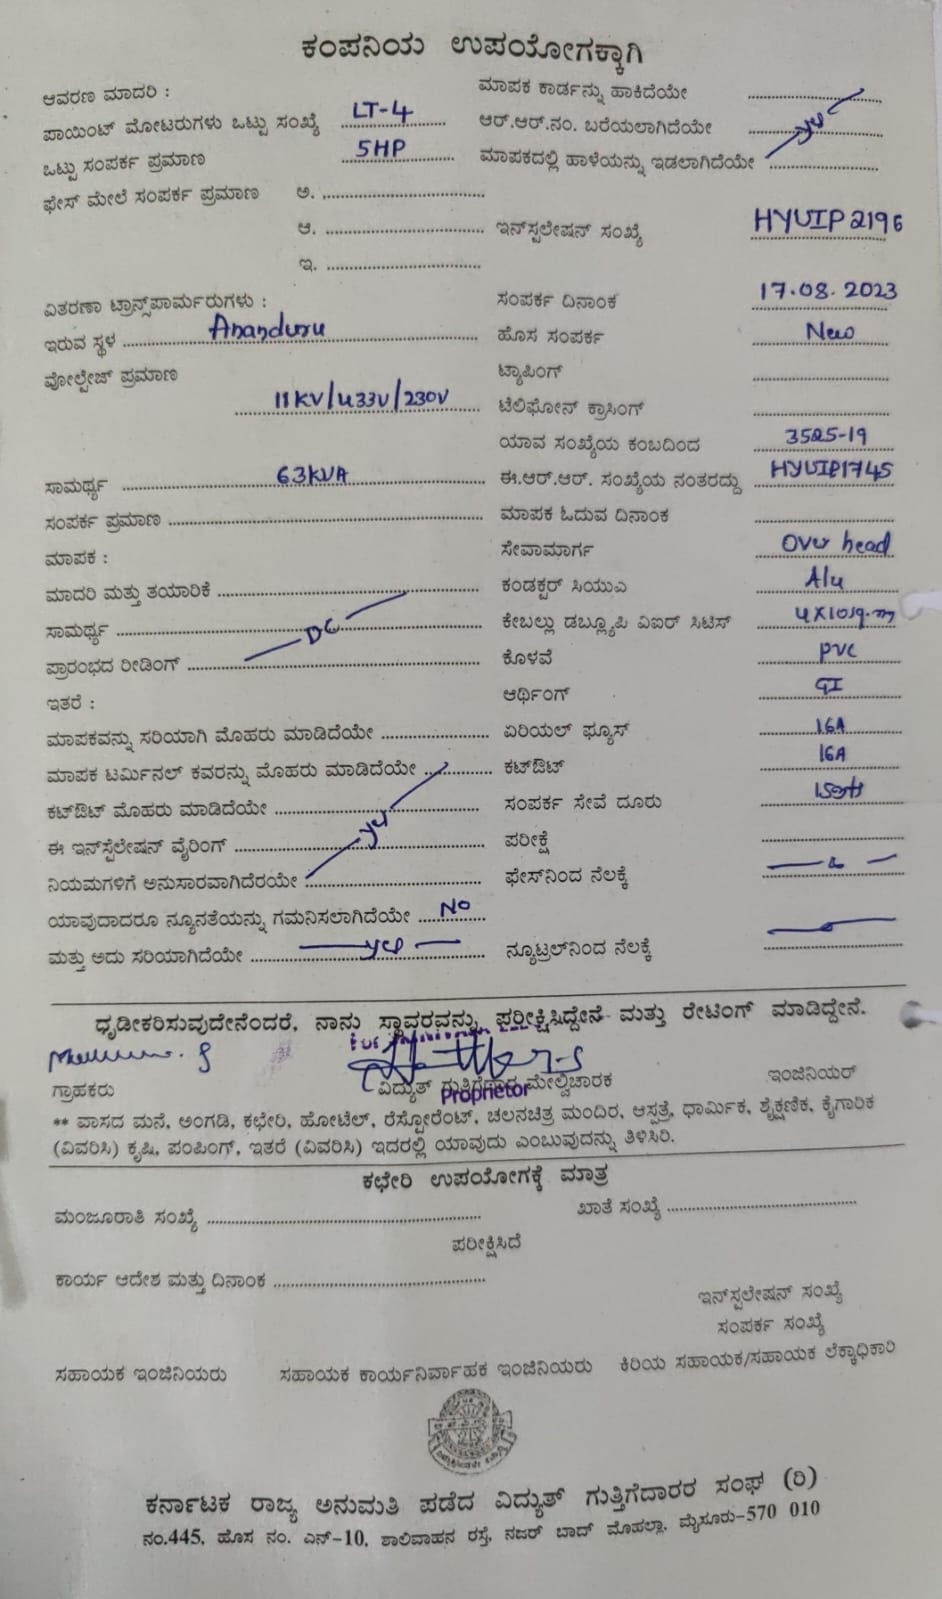 ಕಂಪನಿಯ ಉಪಯೋಗಕ್ಕಾಗಿ
ಆವರಣ ಮಾದರಿ :
ಪಾಯಿಂಟ್ ಮೋಟರುಗಳು ಒಟ್ಟು ಸಂಖ್ಯೆ LT-4
ಒಟ್ಟು ಸಂಪರ್ಕ ಪ್ರಮಾಣ 5HP
ಫೇಸ್ ಮೇಲೆ ಸಂಪರ್ಕ ಪ್ರಮಾಣ ಅ.
ಆ.
ಇ.
ಮಾಪಕ ಕಾರ್ಡನ್ನು ಹಾಕಿದೆಯೇ
ಆರ್.ಆರ್.ನಂ. ಬರೆಯಲಾಗಿದೆಯೇ
ಮಾಪಕದಲ್ಲಿ ಹಾಳೆಯನ್ನು ಇಡಲಾಗಿದೆಯೇ
ಇನ್‌ಸ್ಪಲೇಷನ್ ಸಂಖ್ಯೆ HYUIP2196
ವಿತರಣಾ ಟ್ರಾನ್ಸ್‌ಪಾರ್ಮರುಗಳು :
ಇರುವ ಸ್ಥಳ Ananduru
ವೋಲ್ಟೇಜ್ ಪ್ರಮಾಣ
11KV/433V/230V
ಸಾಮರ್ಥ್ಯ 63KVA
ಸಂಪರ್ಕ ಪ್ರಮಾಣ
ಮಾಪಕ :
ಮಾದರಿ ಮತ್ತು ತಯಾರಿಕೆ
ಸಾಮರ್ಥ್ಯ DC
ಪ್ರಾರಂಭದ ರೀಡಿಂಗ್
ಇತರೆ :
ಮಾಪಕವನ್ನು ಸರಿಯಾಗಿ ಮೊಹರು ಮಾಡಿದೆಯೇ
ಮಾಪಕ ಟರ್ಮಿನಲ್ ಕವರನ್ನು ಮೊಹರು ಮಾಡಿದೆಯೇ
ಕಟ್‌ಔಟ್ ಮೊಹರು ಮಾಡಿದೆಯೇ
ಈ ಇನ್‌ಸ್ಪೆಲೇಷನ್ ವೈರಿಂಗ್
ನಿಯಮಗಳಿಗೆ ಅನುಸಾರವಾಗಿದೆರಯೇ
ಯಾವುದಾದರೂ ನ್ಯೂನತೆಯನ್ನು ಗಮನಿಸಲಾಗಿದೆಯೇ NO
ಮತ್ತು ಅದು ಸರಿಯಾಗಿದೆಯೇ
ಸಂಪರ್ಕ ದಿನಾಂಕ 17.08.2023
ಹೊಸ ಸಂಪರ್ಕ New
ಟ್ಯಾಪಿಂಗ್
ಟೆಲಿಫೋನ್ ಕ್ರಾಸಿಂಗ್
ಯಾವ ಸಂಖ್ಯೆಯ ಕಂಬದಿಂದ 3525-19
ಈ.ಆರ್.ಆರ್. ಸಂಖ್ಯೆಯ ನಂತರದ್ದು HYUIP1745
ಮಾಪಕ ಓದುವ ದಿನಾಂಕ
ಸೇವಾಮಾರ್ಗ Over head
ಕಂಡಕ್ಟರ್ ಸಿಯುಎ Alu
ಕೇಬಲ್ಲು ಡಬ್ಲ್ಯೂಪಿ ವಿಐರ್ ಸಿಟಿಸ್ 4X10sq.m
ಕೊಳವೆ PVC
ಆರ್ಥಿಂಗ್ GI
ಏರಿಯಲ್ ಫ್ಯೂಸ್ 16A
ಕಟ್‌ಔಟ್ 16A
ಸಂಪರ್ಕ ಸೇವೆ ದೂರು
ಪರೀಕ್ಷೆ
ಫೇಸ್‌ನಿಂದ ನೆಲಕ್ಕೆ
ನ್ಯೂಟ್ರಲ್‌ನಿಂದ ನೆಲಕ್ಕೆ
ಧೃಡೀಕರಿಸುವುದೇನೆಂದರೆ, ನಾನು ಸ್ಥಾವರವನ್ನು ಪರೀಕ್ಷಿಸಿದ್ದೇನೆ ಮತ್ತು ರೇಟಿಂಗ್ ಮಾಡಿದ್ದೇನೆ.
ಗ್ರಾಹಕರು ವಿದ್ಯುತ್ ಗುತ್ತಿಗೆದಾರ ಮೇಲ್ವಿಚಾರಕ ಇಂಜಿನಿಯರ್
Proprietor
** ವಾಸದ ಮನೆ, ಅಂಗಡಿ, ಕಛೇರಿ, ಹೋಟೆಲ್, ರೆಸ್ಟೋರೆಂಟ್, ಚಲನಚಿತ್ರ ಮಂದಿರ, ಆಸ್ಪತ್ರೆ, ಧಾರ್ಮಿಕ, ಶೈಕ್ಷಣಿಕ, ಕೈಗಾರಿಕ
(ವಿವರಿಸಿ) ಕೃಷಿ, ಪಂಪಿಂಗ್, ಇತರೆ (ವಿವರಿಸಿ) ಇದರಲ್ಲಿ ಯಾವುದು ಎಂಬುವುದನ್ನು ತಿಳಿಸಿರಿ.
ಕಛೇರಿ ಉಪಯೋಗಕ್ಕೆ ಮಾತ್ರ
ಮಂಜೂರಾತಿ ಸಂಖ್ಯೆ ಖಾತೆ ಸಂಖ್ಯೆ
ಪರೀಕ್ಷಿಸಿದೆ
ಕಾರ್ಯ ಆದೇಶ ಮತ್ತು ದಿನಾಂಕ
ಇನ್‌ಸ್ಪಲೇಷನ್ ಸಂಖ್ಯೆ
ಸಂಪರ್ಕ ಸಂಖ್ಯೆ
ಸಹಾಯಕ ಇಂಜಿನಿಯರು ಸಹಾಯಕ ಕಾರ್ಯನಿರ್ವಾಹಕ ಇಂಜಿನಿಯರು ಕಿರಿಯ ಸಹಾಯಕ/ಸಹಾಯಕ ಲೆಕ್ಕಾಧಿಕಾರಿ
ಕರ್ನಾಟಕ ರಾಜ್ಯ ಅನುಮತಿ ಪಡೆದ ವಿದ್ಯುತ್ ಗುತ್ತಿಗೆದಾರರ ಸಂಘ (ರಿ)
ನಂ.445, ಹೊಸ ನಂ. ಎನ್-10, ಶಾಲಿವಾಹನ ರಸ್ತೆ, ನಜರ್ ಬಾದ್ ಮೊಹಲ್ಲಾ, ಮೈಸೂರು-570 010